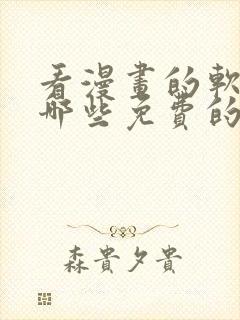 看漫畫的軟
哪些免費的
森貴夕貴